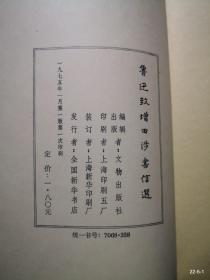 鲁迅致增田涉書信选
编辑者:文物出版社
出版者:
印刷者:上海印刷五厂
装订者:上海新华印刷厂
发行者:全国新华书店
一九七五年一月第一版第一次印刷
定价:一·八〇元
统一书号:7068·358
22-6-1